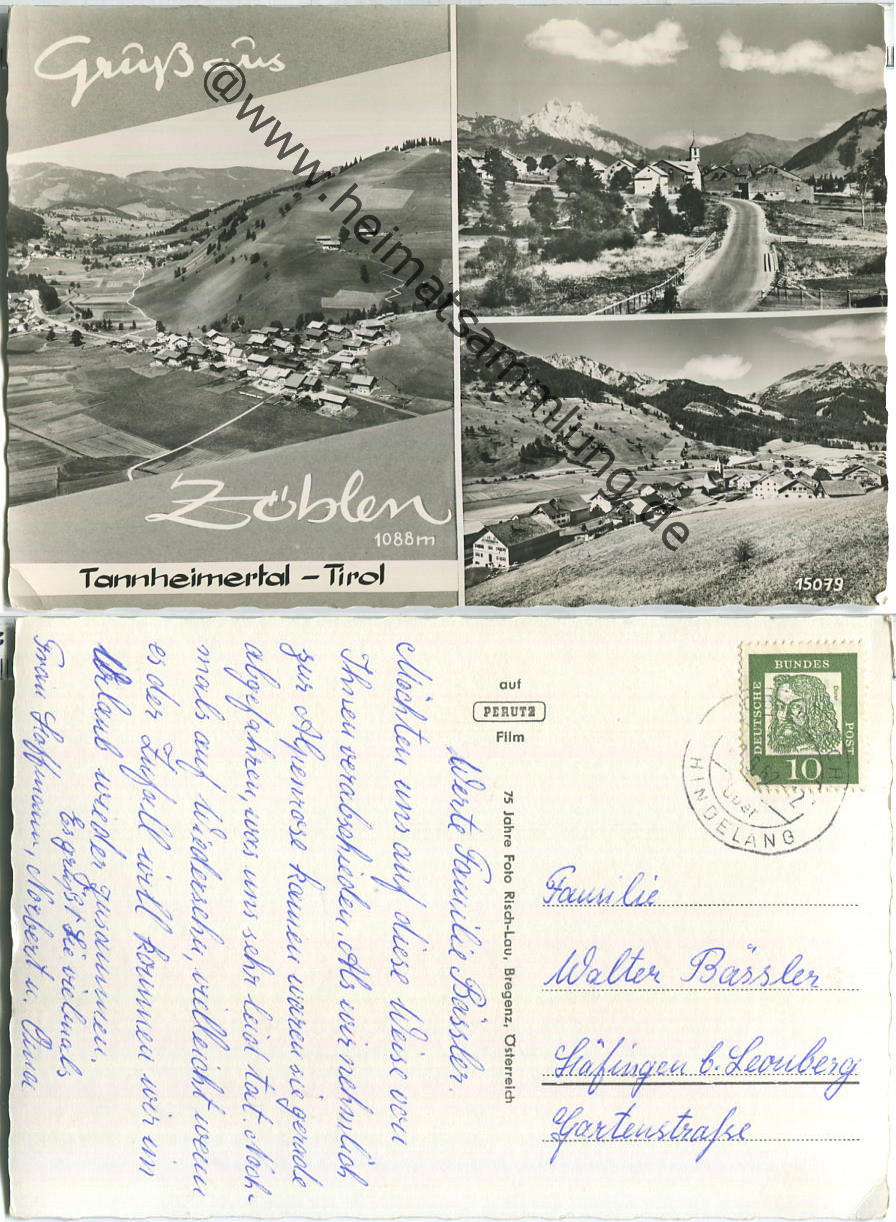 Grüß aus
Zöblen
1088m
Tannheimertal - Tirol
15079
@www.heimatsammlung.de
auf
PERUTZ
Film
75 Jahre Foto Risch-Lau, Bregenz, Österreich
DEUTSCHE
BUNDES
POST
Dürer
10
über
HINDELANG
Werte Familie Bässler.
Möchten uns auf diese Weise von
Ihnen verabschieden. Als wir nehmlich
zur Alpenrose kamen waren sie gerade
abgefahren, was uns sehr leid tat. Noch-
mals auf Wiedersehn, vielleicht wenn
es der Zufall will kommen wir im
Urlaub wieder zusammen.
Es grüßt Sie vielmals
Frau Hoffmann, Norbert u. Oma
Familie
Walter Bässler
Höfingen b. Leonberg
Gartenstraße